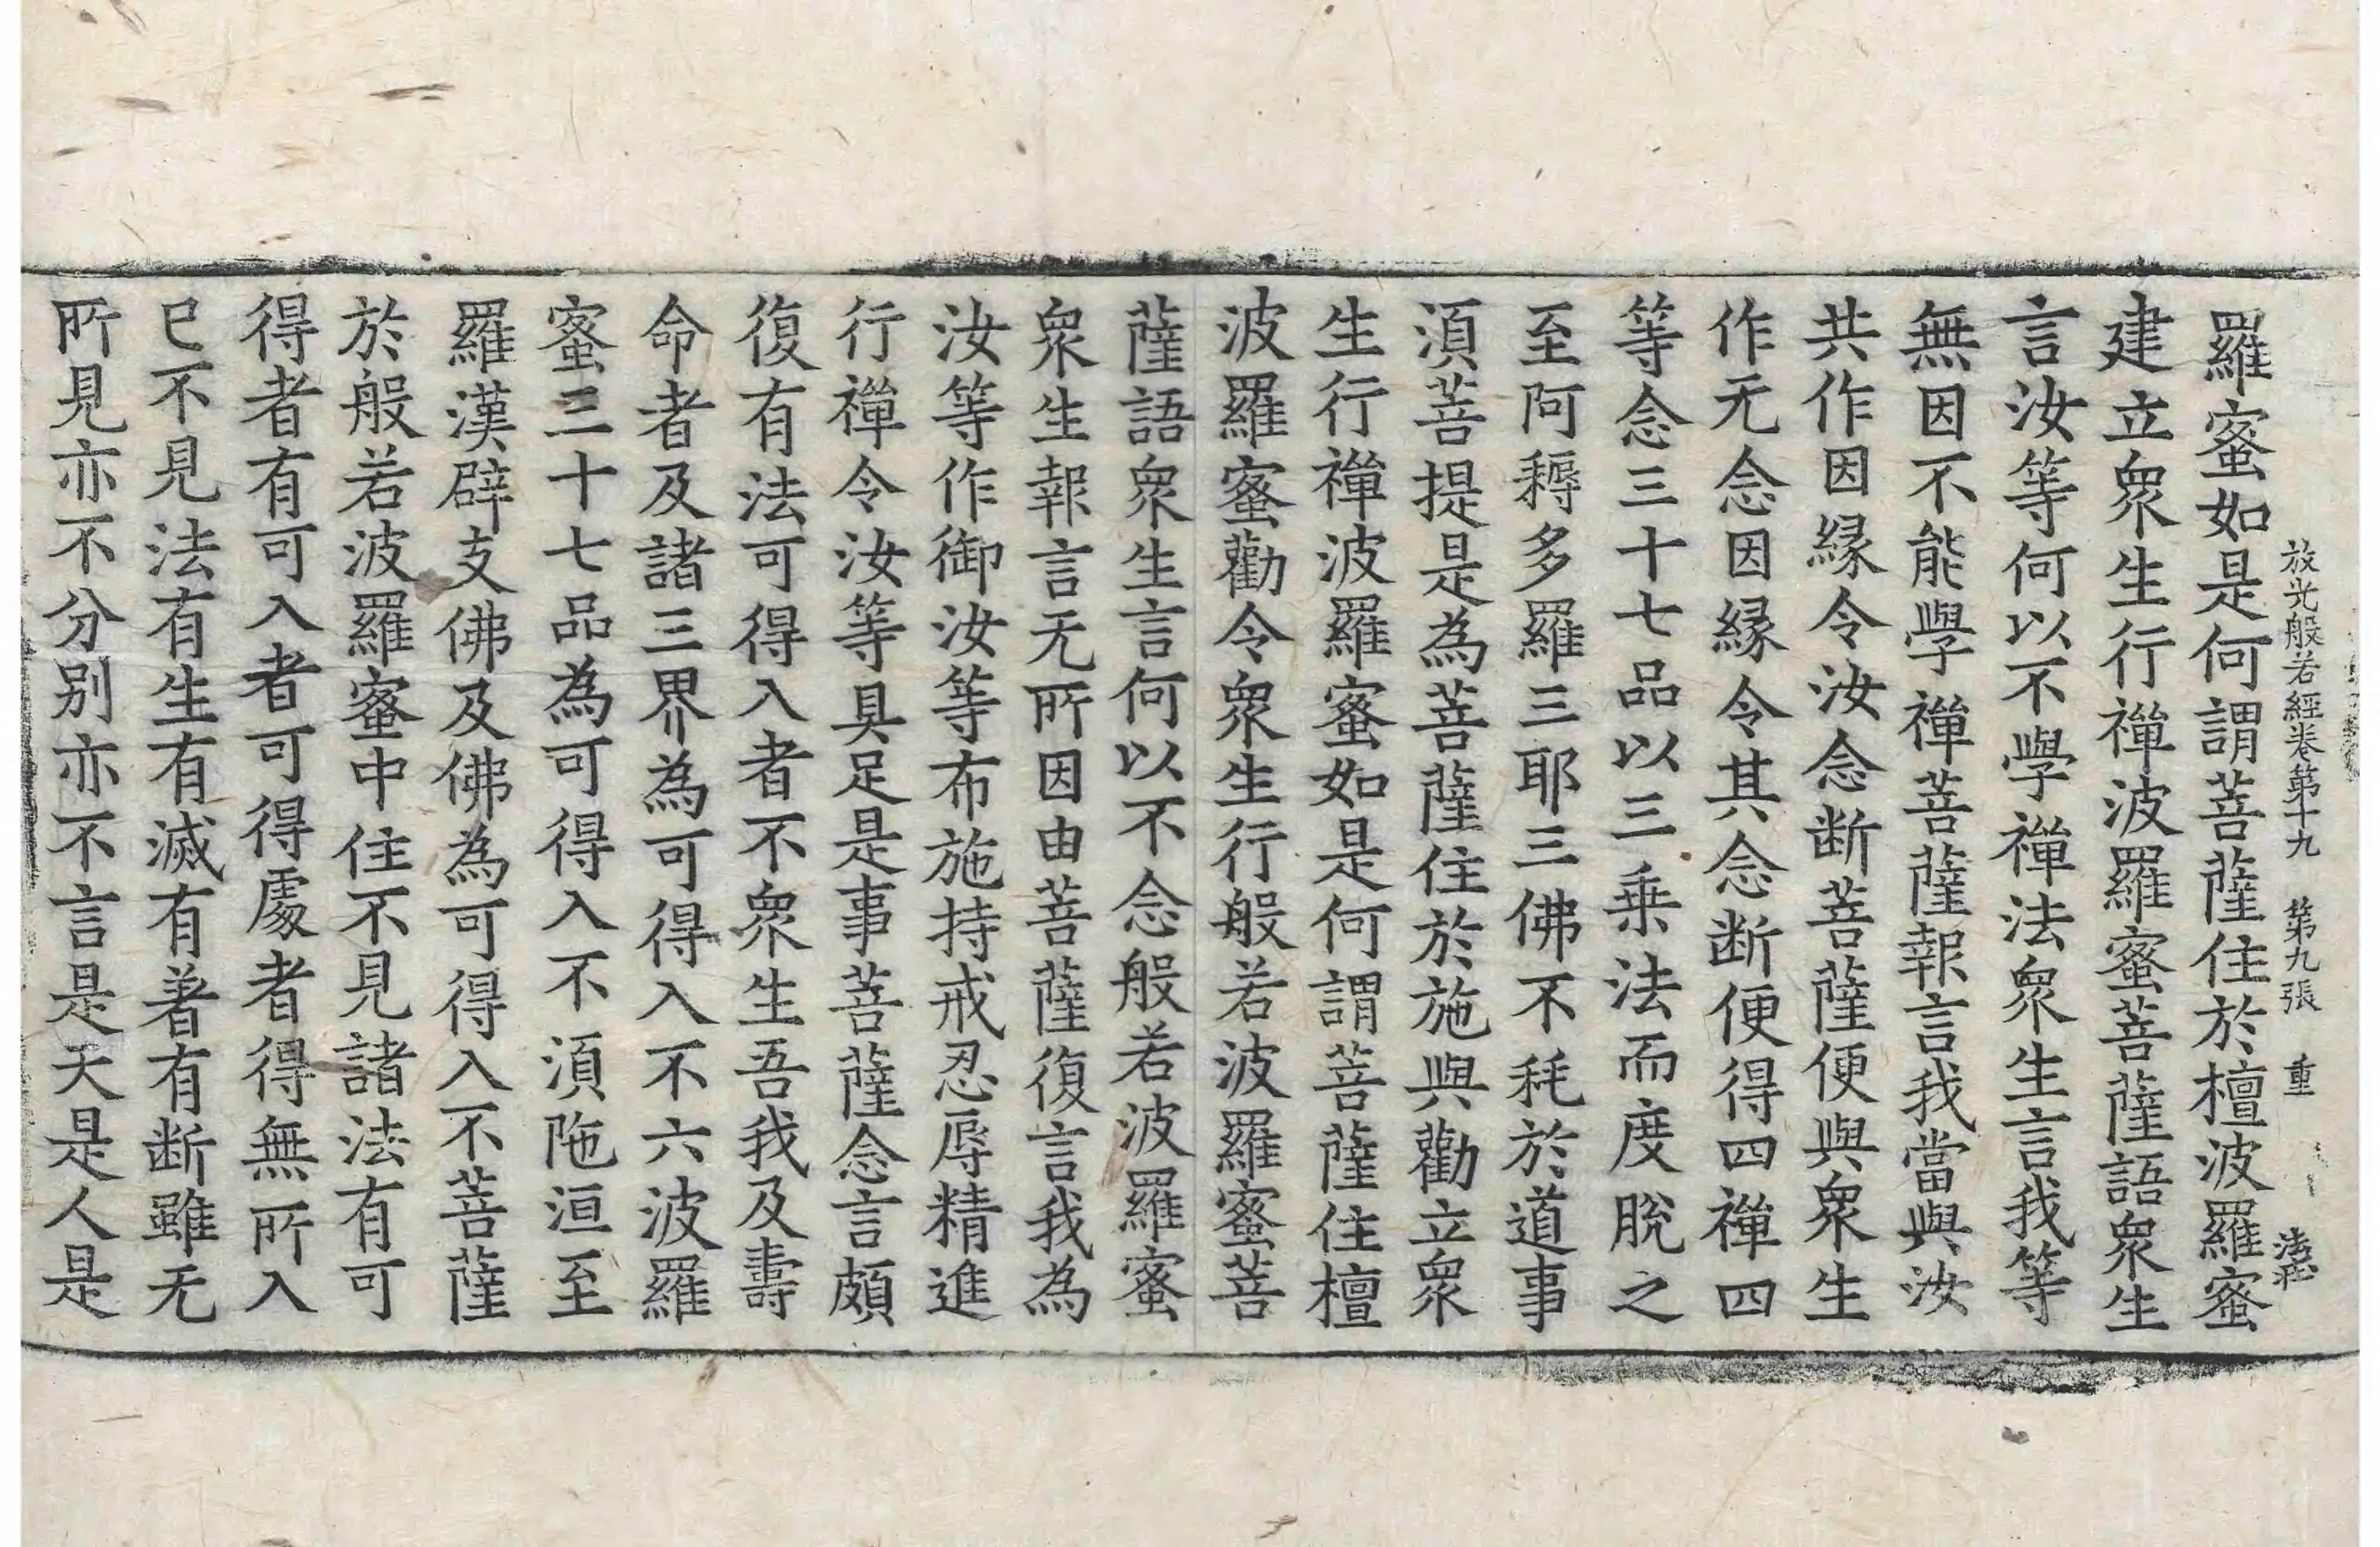 放光般若經卷第十九 第九張 重
羅蜜如是何謂菩薩住於檀波羅蜜
建立衆生行禪波羅蜜菩薩語衆生
言汝等何以不學禪法衆生言我等
無因不能學禪菩薩報言我當與汝
共作因縁令汝念断菩薩便與衆生
作无念因縁令其念断便得四禪四
等念三十七品以三乗法而度脫之
至阿耨多羅三耶三佛不秏於道事
湏菩提是為菩薩住於施與勸立衆
生行禪波羅蜜如是何謂菩薩住檀
波羅蜜勸令衆生行般若波羅蜜菩
薩語衆生言何以不念般若波羅蜜
衆生報言无所因由菩薩復言我為
汝等作御汝等布施持戒忍辱精進
行禪令汝等具足是事菩薩念言頗
復有法可得入者不衆生吾我及壽
命者及諸三界為可得入不六波羅
蜜三十七品為可得入不湏陁洹至
羅漢辟支佛及佛為可得入不菩薩
於般若波羅蜜中住不見諸法有可
得者有可入者可得處者得無所入
已不見法有生有滅有著有断雖无
所見亦不分别亦不言是天是人是